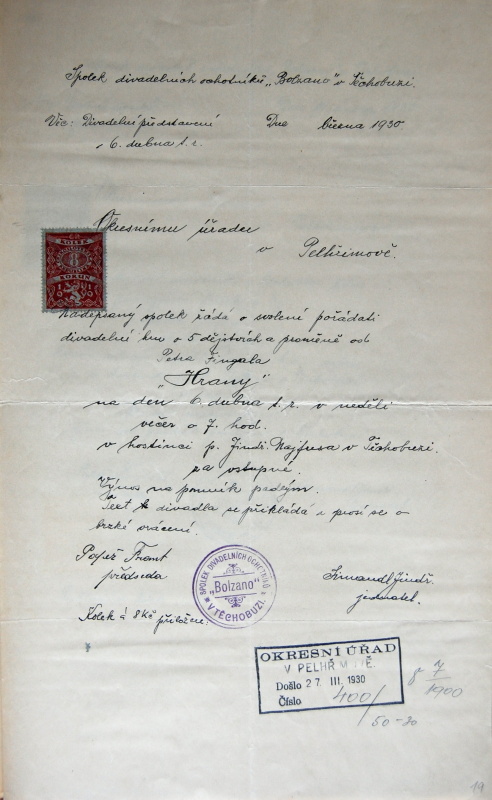 Spolek divadelních ochotníků „Bolzano" v Těchobuzi.
Věc: Divadelní představení Dne března 1930
6. dubna t. r.
Okresnímu úřadu
v Pelhřimově.
KOLEK
8
KORUN
Nadepsaný spolek žádá o svolení pořádati
divadelní hru o 5 dějstvích a proměně od
Petra Fingala
„Hrany"
na den 6. dubna t. r. v neděli
večer o 7. hod.
v hostinci p. Jindř. Najfusa v Těchobuzi.
za vstupné.
Výnos na pomník padlým.
Text k divadla se přikládá a prosí se o
brzké vrácení.
předseda
jednatel.
SPOLEK DIVADELNÍCH OCHOTNÍKŮ
„Bolzano"
V TĚCHOBUZI
Kolek á 8 Kč přiložen.
OKRESNÍ ÚŘAD
V PELHŘIMOVĚ.
Došlo 27. III. 1930
Číslo 400/
50-30
7
1900
19